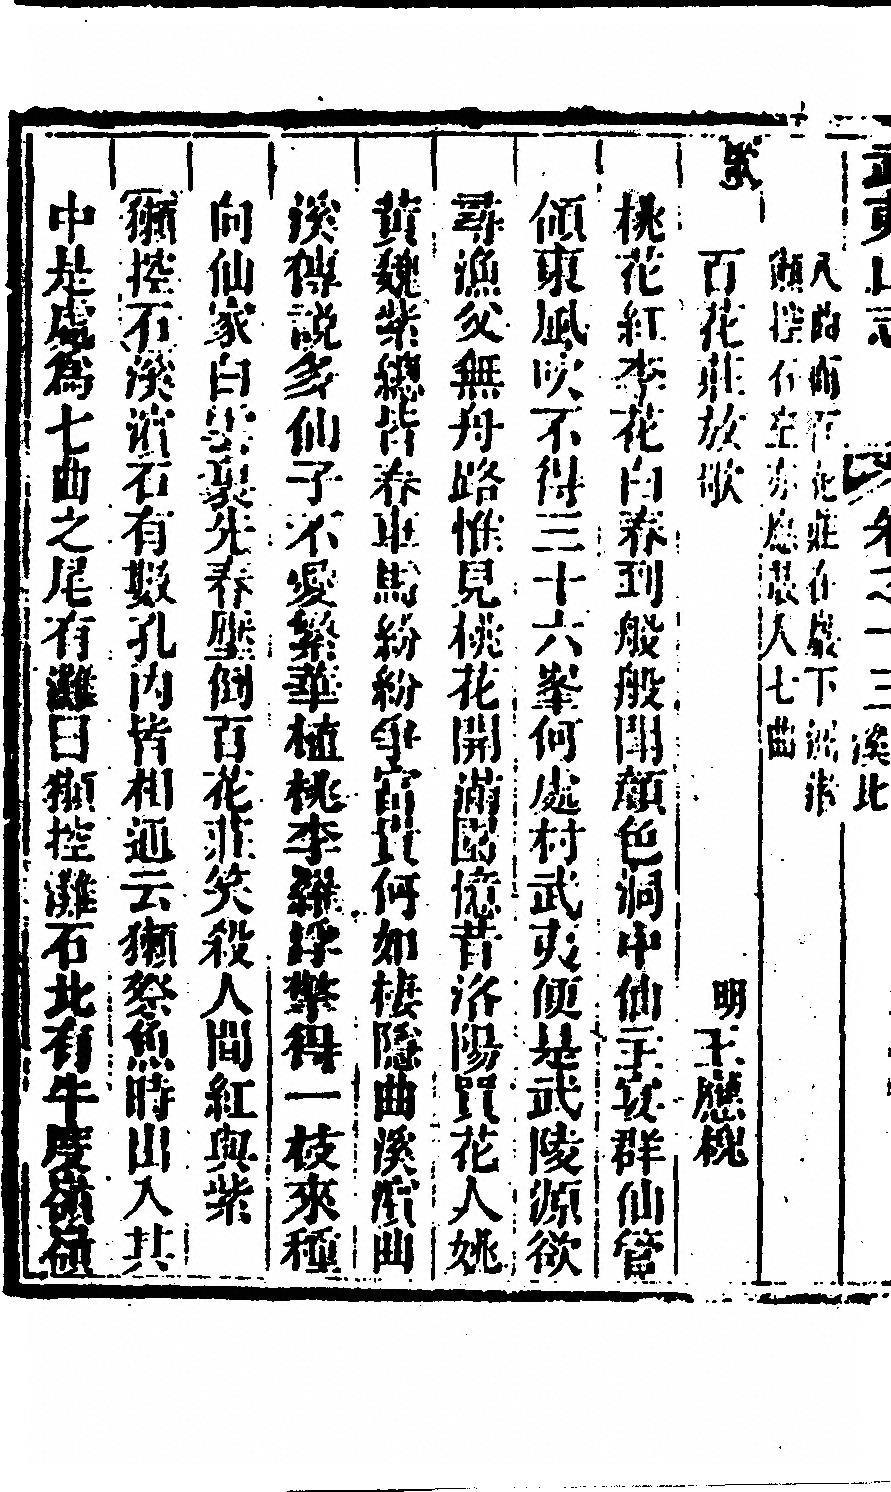 武夷山志 卷之十三 溪北
八曲而百花莊在巖下
獺控石在水七曲
歌
百花莊放歌 明 王應槐
桃花紅李花白春到般般開顏色洞中仙王宴群仙管
領東風吹不得三十六峯何處村武夷便是武陵源欲
尋漁父無舟路惟見桃花開滿園憶昔洛陽買花人姚
黃魏紫總皆春車馬紛紛爭富貴何如棲隱曲溪濱曲
溪傳說多仙子不愛繁華植桃李羅浮擎得一枝來種
向仙家白雲裏先春壓倒百花莊笑殺人間紅與紫
獺控石溪濱石有數孔內皆相通云獺祭魚時出入其
中是處為七曲之尾有灘曰獺控灘石北有牛度嶺嶺